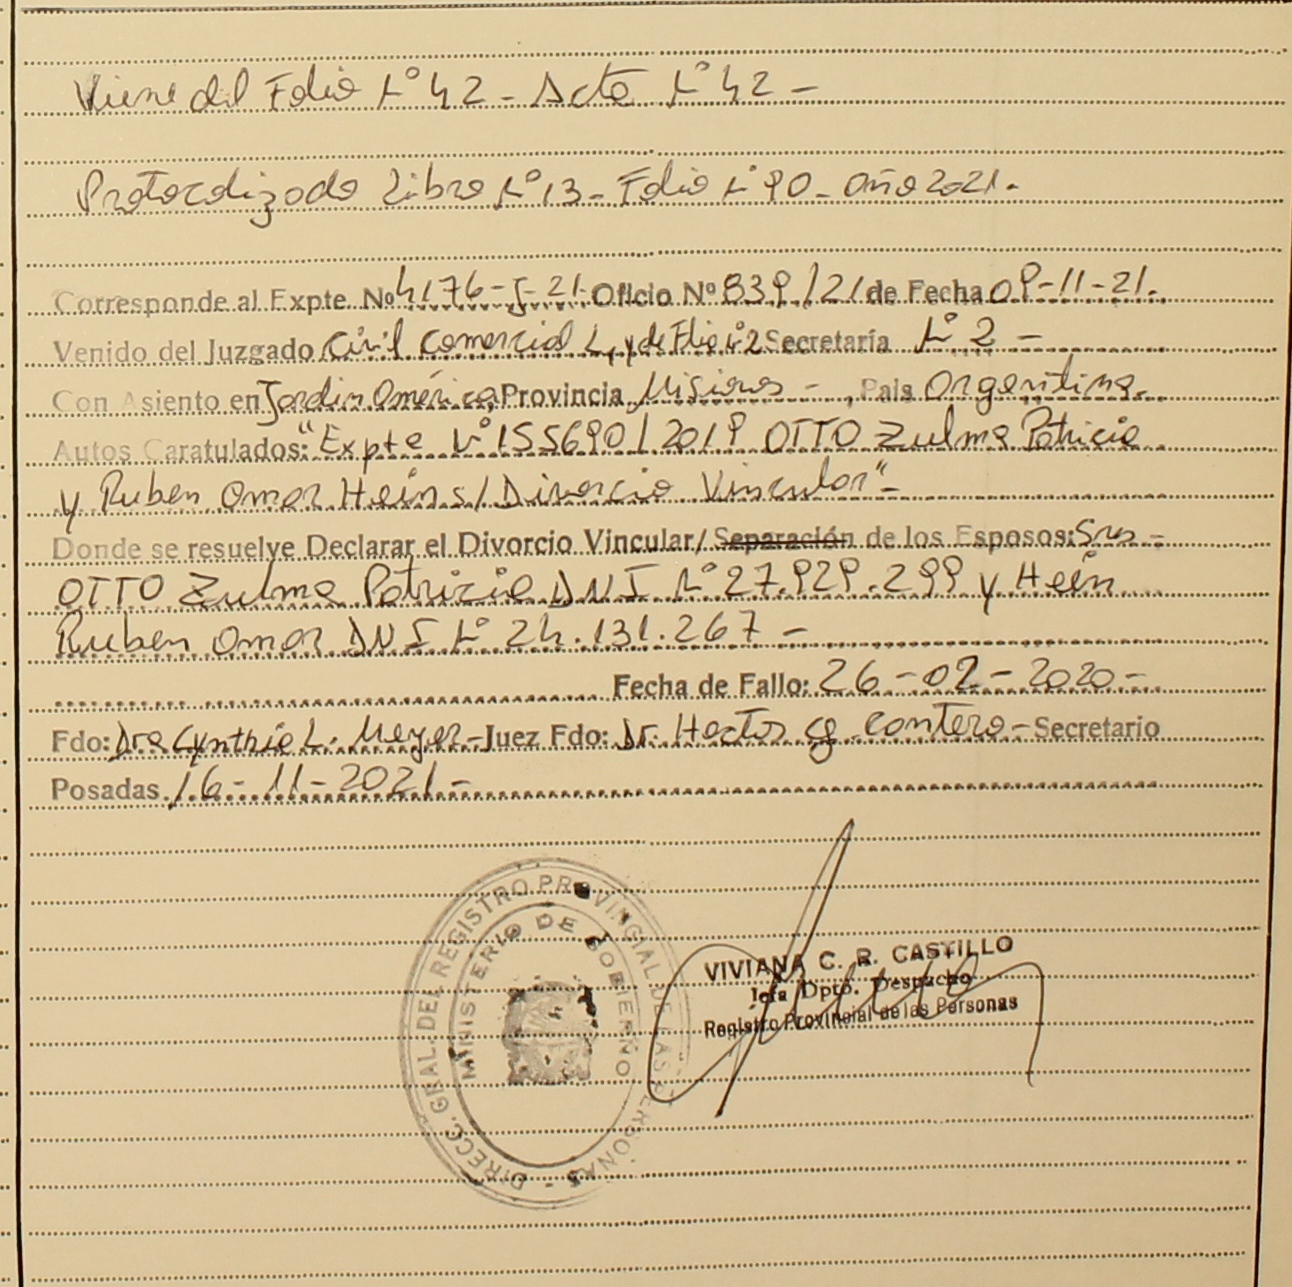 Viene del Folio N° 42 - Acta N° 42 -
Protocolizado Libro N° 13 - Folio N° 90 - Año 2021.
Corresponde al Expte. Nº 4176-J-21 Oficio Nº 839/21 de Fecha 09-11-21.
Venido del Juzgado Civil Comercial L, y de Flia N° 2 Secretaría N° 2 -
Con Asiento en Jardín América, Provincia Misiones - , País Argentina.
Autos Caratulados: "Expte N° 155690/2019 OTTO Zulma Patricia
y Ruben Omar Hein s/ Divorcio Vincular" -
Donde se resuelve Declarar el Divorcio Vincular/ Separación de los Esposos: Sres -
OTTO Zulma Patricia DNI N° 27.929.299 y Hein
Ruben Omar DNI N° 24.131.267 -
Fecha de Fallo: 26-02-2020 -
Fdo: Dra Cynthia L. Meyer - Juez Fdo: Dr. Hector G. Contero - Secretario
Posadas 16-11-2021 -
DIRECC. GRAL. DEL REGISTRO PROVINCIAL DE LAS PERSONAS -
MINISTERIO DE GOBIERNO
VIVIANA C. R. CASTILLO
Jefa Dpto. Despacho
Registro Provincial de las Personas